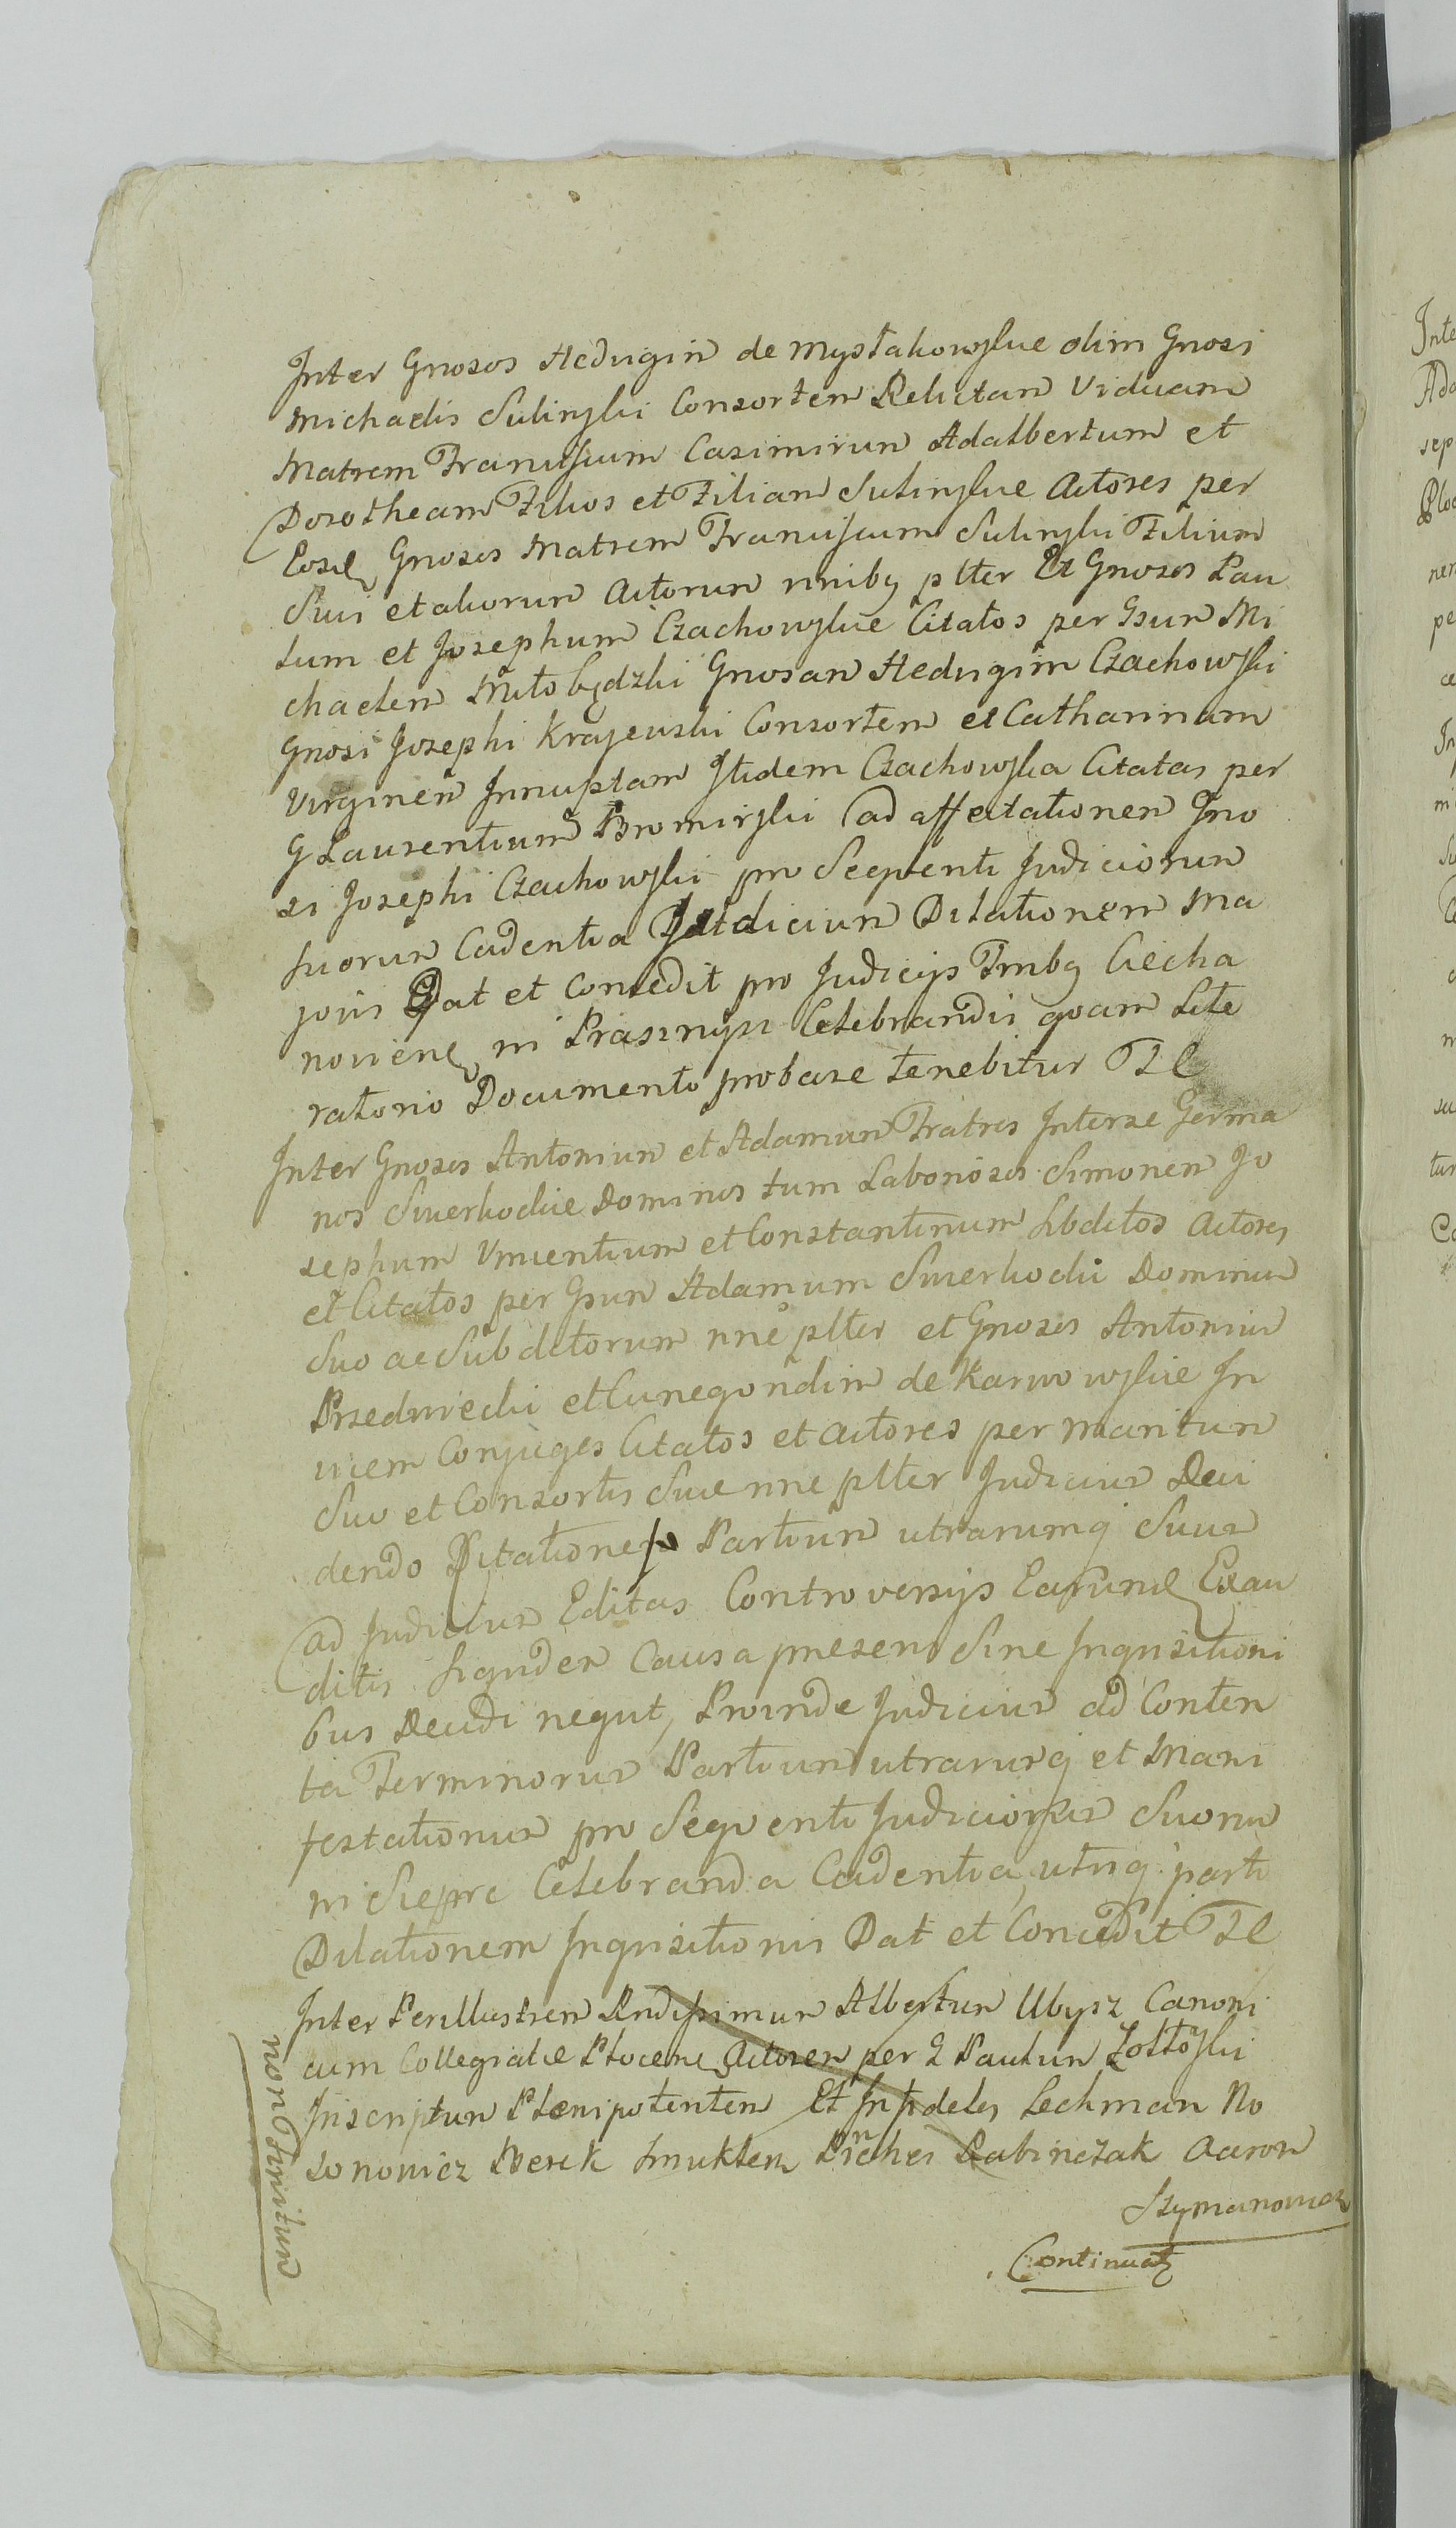 Inter Gnosos Hedvigim de Mystakowskie olim Gnosi
Michaelis Sulinski Consortem Relictam Viduam
Matrem Franciscum Casimirum Adalbertum et
Dorotheam Filios et Filiam Sulinskie Actores per
Eosd Gnosos Matrem Franciscum Sulinski Filium
Sui et aliorum Actorum nnibq plter Et Gnosos Pau
lum et Josephum Czachowskie Citatos per Gsum Mi
chaelem Miłobędzki Gnosam Hedvigim Czachowski
Gnosi Josephi Krajewski Consortem et Catharinam
Virginem Innuptam Itidem Czachowska Citatas per
G Laurentium Bromirski ad affectationem Gno
si Josephi Czachowski pro Seqventi Judiciorum
suorum Cadentia Judicium Dilationem Ma
joris Dat et Concedit pro Judicijs Trnibq Ciecha
noviene in Prasnysz Celebrandis qvam Lite
ratorio Documento probare tenebitur T L
Inter Gnosos Antonium et Adamum Fratres Interse Germa
nos Smerkockie Dominos tum Laboriosos Simonem Jo
sephum Vincentium et Constantinum Sbditos Actores
et Citatos per Gsum Adamum Smerkocki Dominum
Suo ac Subditorum nne plter et Gnosos Antonium
Przedwiecki et Cunegondim de Karwowskie In
vicem Conjuges Citatos et Actores per Maritum
Suo et Consortis Suae nne plter Judicium Deci
dendo Citationes Partium utrarumq Suum
ad Judicium Editas Controversijs Earund Exau
ditis Siqvidem Causa presens Sine Inqvisitioni
bus Decidi neqvit, Proinde Judicium ad Conten
ta Terminorum Partium utrarumq et Mani
festationum pro Seqventi Judiciorum Suorum
in Sieprc Celebranda Cadentia, utriq parti
Dilationem Inqvisitionis Dat et Concedit T L
Inter Perillustrem Rndissimum Albertum Ubysz Canoni
cum Collegiatae Plocens Actorem per G Paulum Zołtoski
Inscriptum Plenipotentem Et Infideles Lechman No
sonowicz Berek Smuklerz Pinches Rabinczak Aaron
Szymanowicz
Continuatq
non Finitum